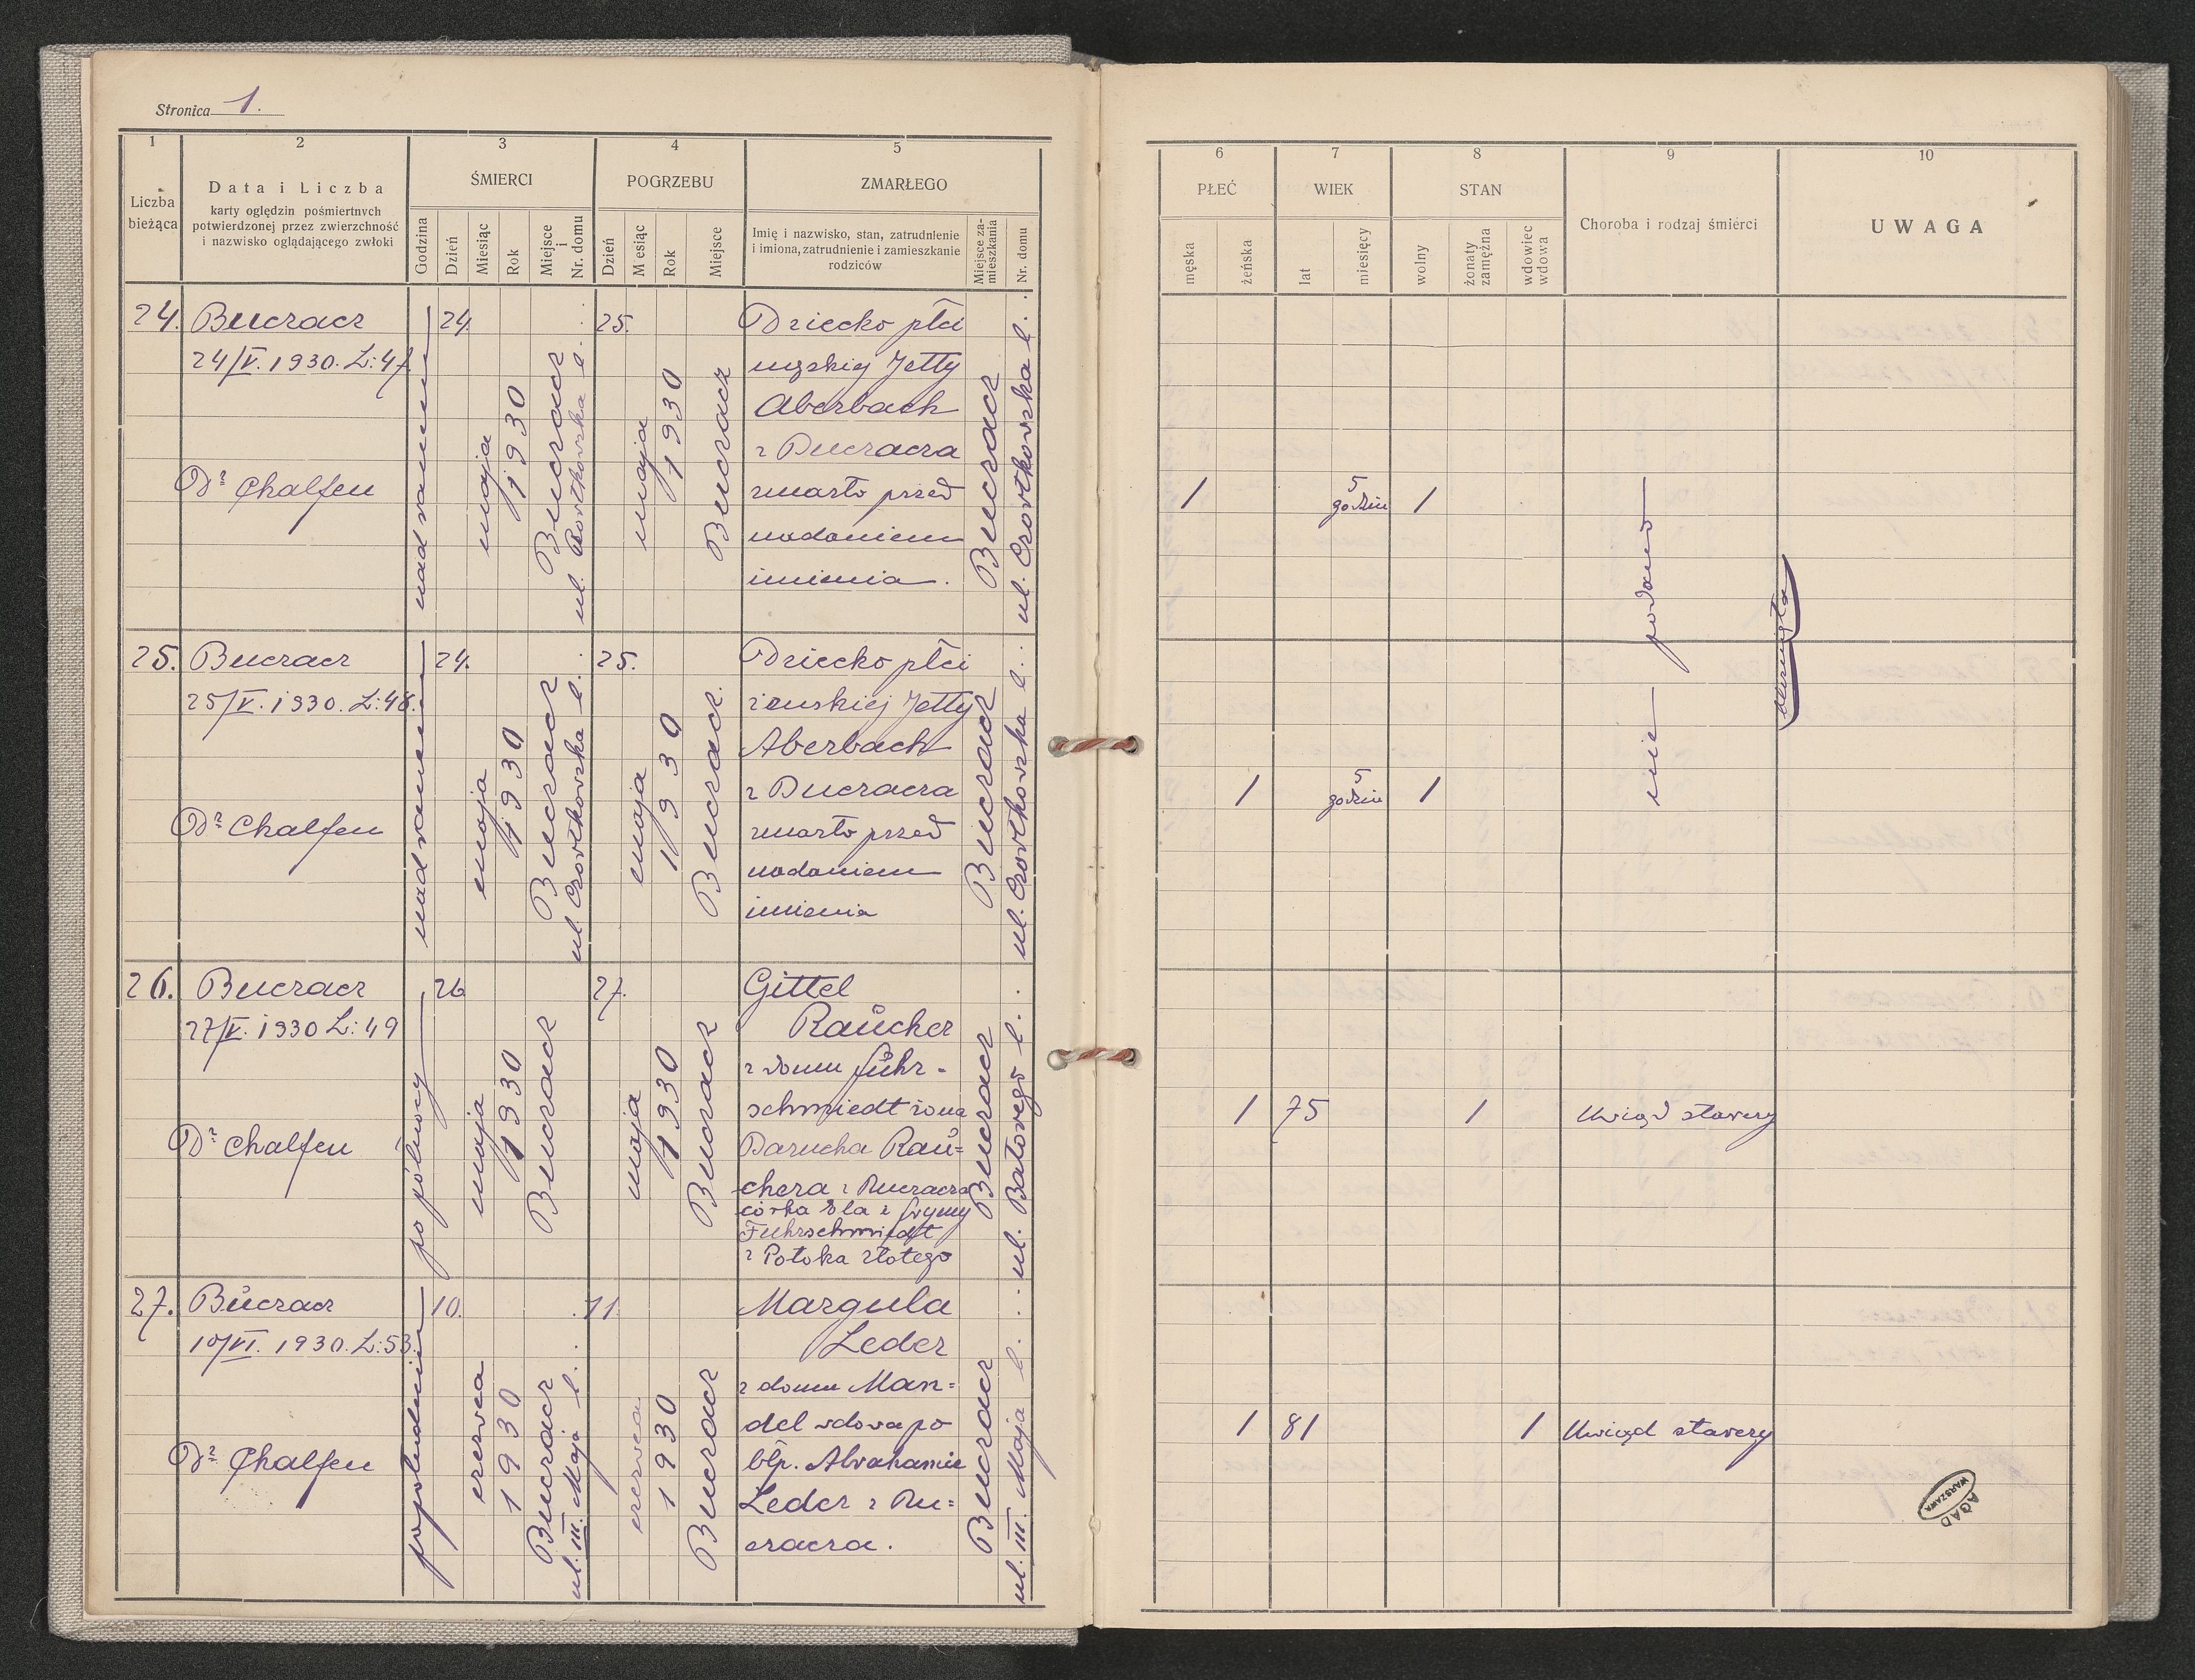 Stronica 1.
1 2 3 4 5
Liczba bieżąca
Data i Liczba
karty oględzin pośmiertnych
potwierdzonej przez zwierzchność
i nazwisko oglądającego zwłoki
ŚMIERCI
Godzina
Dzień
Miesiąc
Rok
Miejsce i Nr. domu
POGRZEBU
Dzień
M esiąc
Rok
Miejsce
ZMARŁEGO
Imię i nazwisko, stan, zatrudnienie
i imiona, zatrudnienie i zamieszkanie
rodziców
Miejsce za-
mieszkania
Nr. domu
6 7 8 9 10
PŁEĆ
męska
żeńska
WIEK
lat
miesięcy
STAN
wolny
żonaty
zamężna
wdowiec
wdowa
Choroba i rodzaj śmierci
UWAGA
24.
Buczacz
24/V. 1930. L: 47
Dr Chalfen
nad ranem
24.
maja
1930
Buczacz
ul. Czortkowska l. . .
25.
maja
1930
Buczacz
Dziecko płci
męskiej Jetty
Aberbach
z Buczacza
zmarło przed
nadaniem
imienia.
Buczacz
ul. Czortkowska l. .
1
5
godzin
1
nie podano
bliźnięta
25.
Buczacz
25/V. 1930. L: 48.
Dr Chalfen
nad ranem
24.
maja
1930
Buczacz
ul. Czortkowska l. .
25.
maja
1930
Buczacz.
Dziecko płci
żeńskiej Jetty
Aberbach
z Buczacza
zmarło przed
nadaniem
imienia
Buczacz
ul. Czortkowska l. . .
1
5
godzin
1
26.
Buczacz
27/V. 1930 L: 49
Dr Chalfen
po północy
26
maja
1930
Buczacz
27.
maja
1930
Buczacz
Gittel
Raucher
z domu Fuhr-
schmiedt żona
Barucha Rau=
chera z Buczacza
córka Ela i Frymy
Fuhrschmiedt
z Potoka złotego
Buczacz
ul. Batorego l. . .
1
75
1
Uwiąd starczy
27.
Buczacz
10/VI. 1930. L: 53.
Dr Chalfen
popołudniu
10.
czerwca
1930
Buczacz
ul. III. Maja l. . .
11.
czerwca
1930
Buczacz
Margula
Leder
z domu Man=
del wdowa po
błp. Abrahamie
Leder z Bu=
czacza.
Buczacz
ul. III. Maja l. . .
1
81
1
Uwiąd starczy
AGAD
WARSZAWA